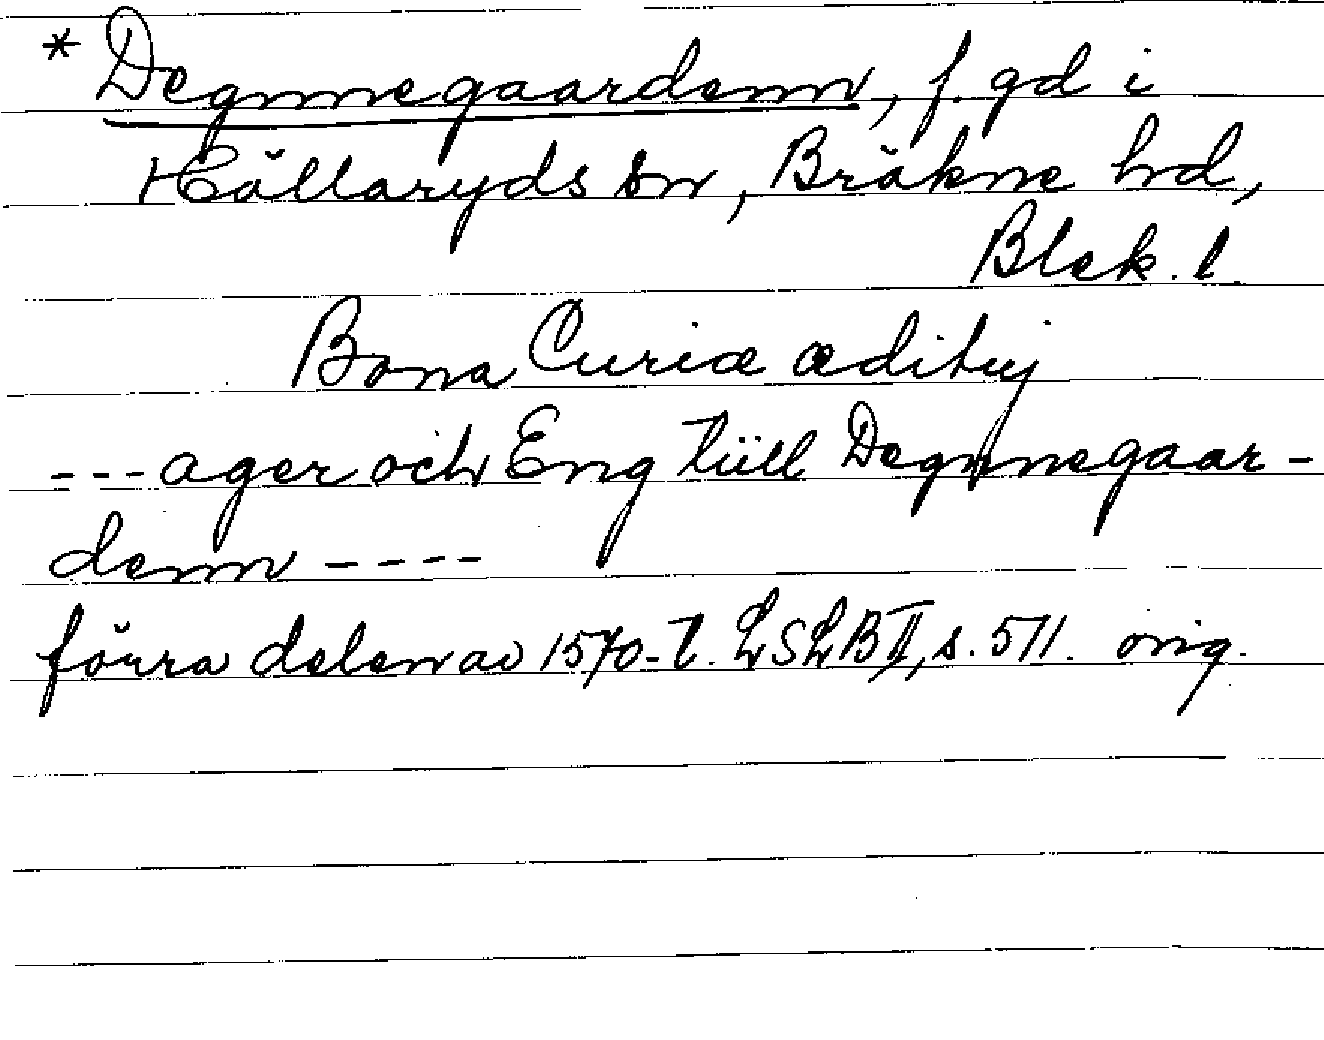 * Degnnegaardenn, f. gd i
Hällaryds sn, Bräkne hd,
Blek. l.
Bona Curiæ ædituj
---ager och Eng tüll Degnnegaar-
denn ----
förra delen av 1570-t. LSLB II, s. 511. orig.